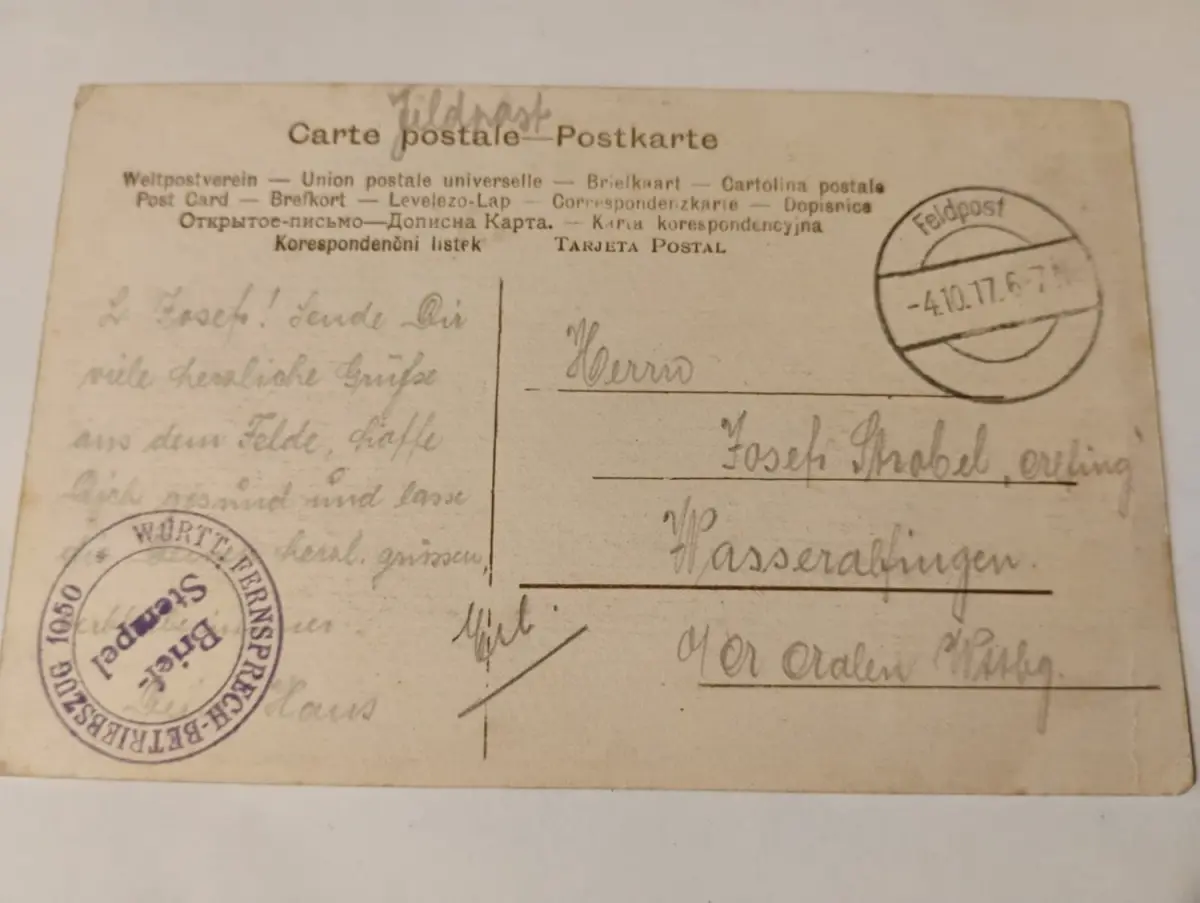 Feldpost
Carte postale—Postkarte
Weltpostverein — Union postale universelle — Briefkaart — Cartolina postale
Post Card — Brefkort — Levelezo-Lap — Correspondenzkarte — Dopisnice
Открытое-письмо—Дописна Карта. — Karta korespondencyjna
Korespondenčni listek TARJETA POSTAL
Feldpost
-4.10.17. 6-7
L Josef! Sende Dir
viele herzliche Grüße
aus dem Felde, hoffe
Dich gesund und lasse
herzl. grüssen,
Hans
WÜRTT. FERNSPRECH-BETRIEBSZUG 1050
Brief-
Stempel
Herrn
Josef Strobel
Wasseralfingen
Wttbg.